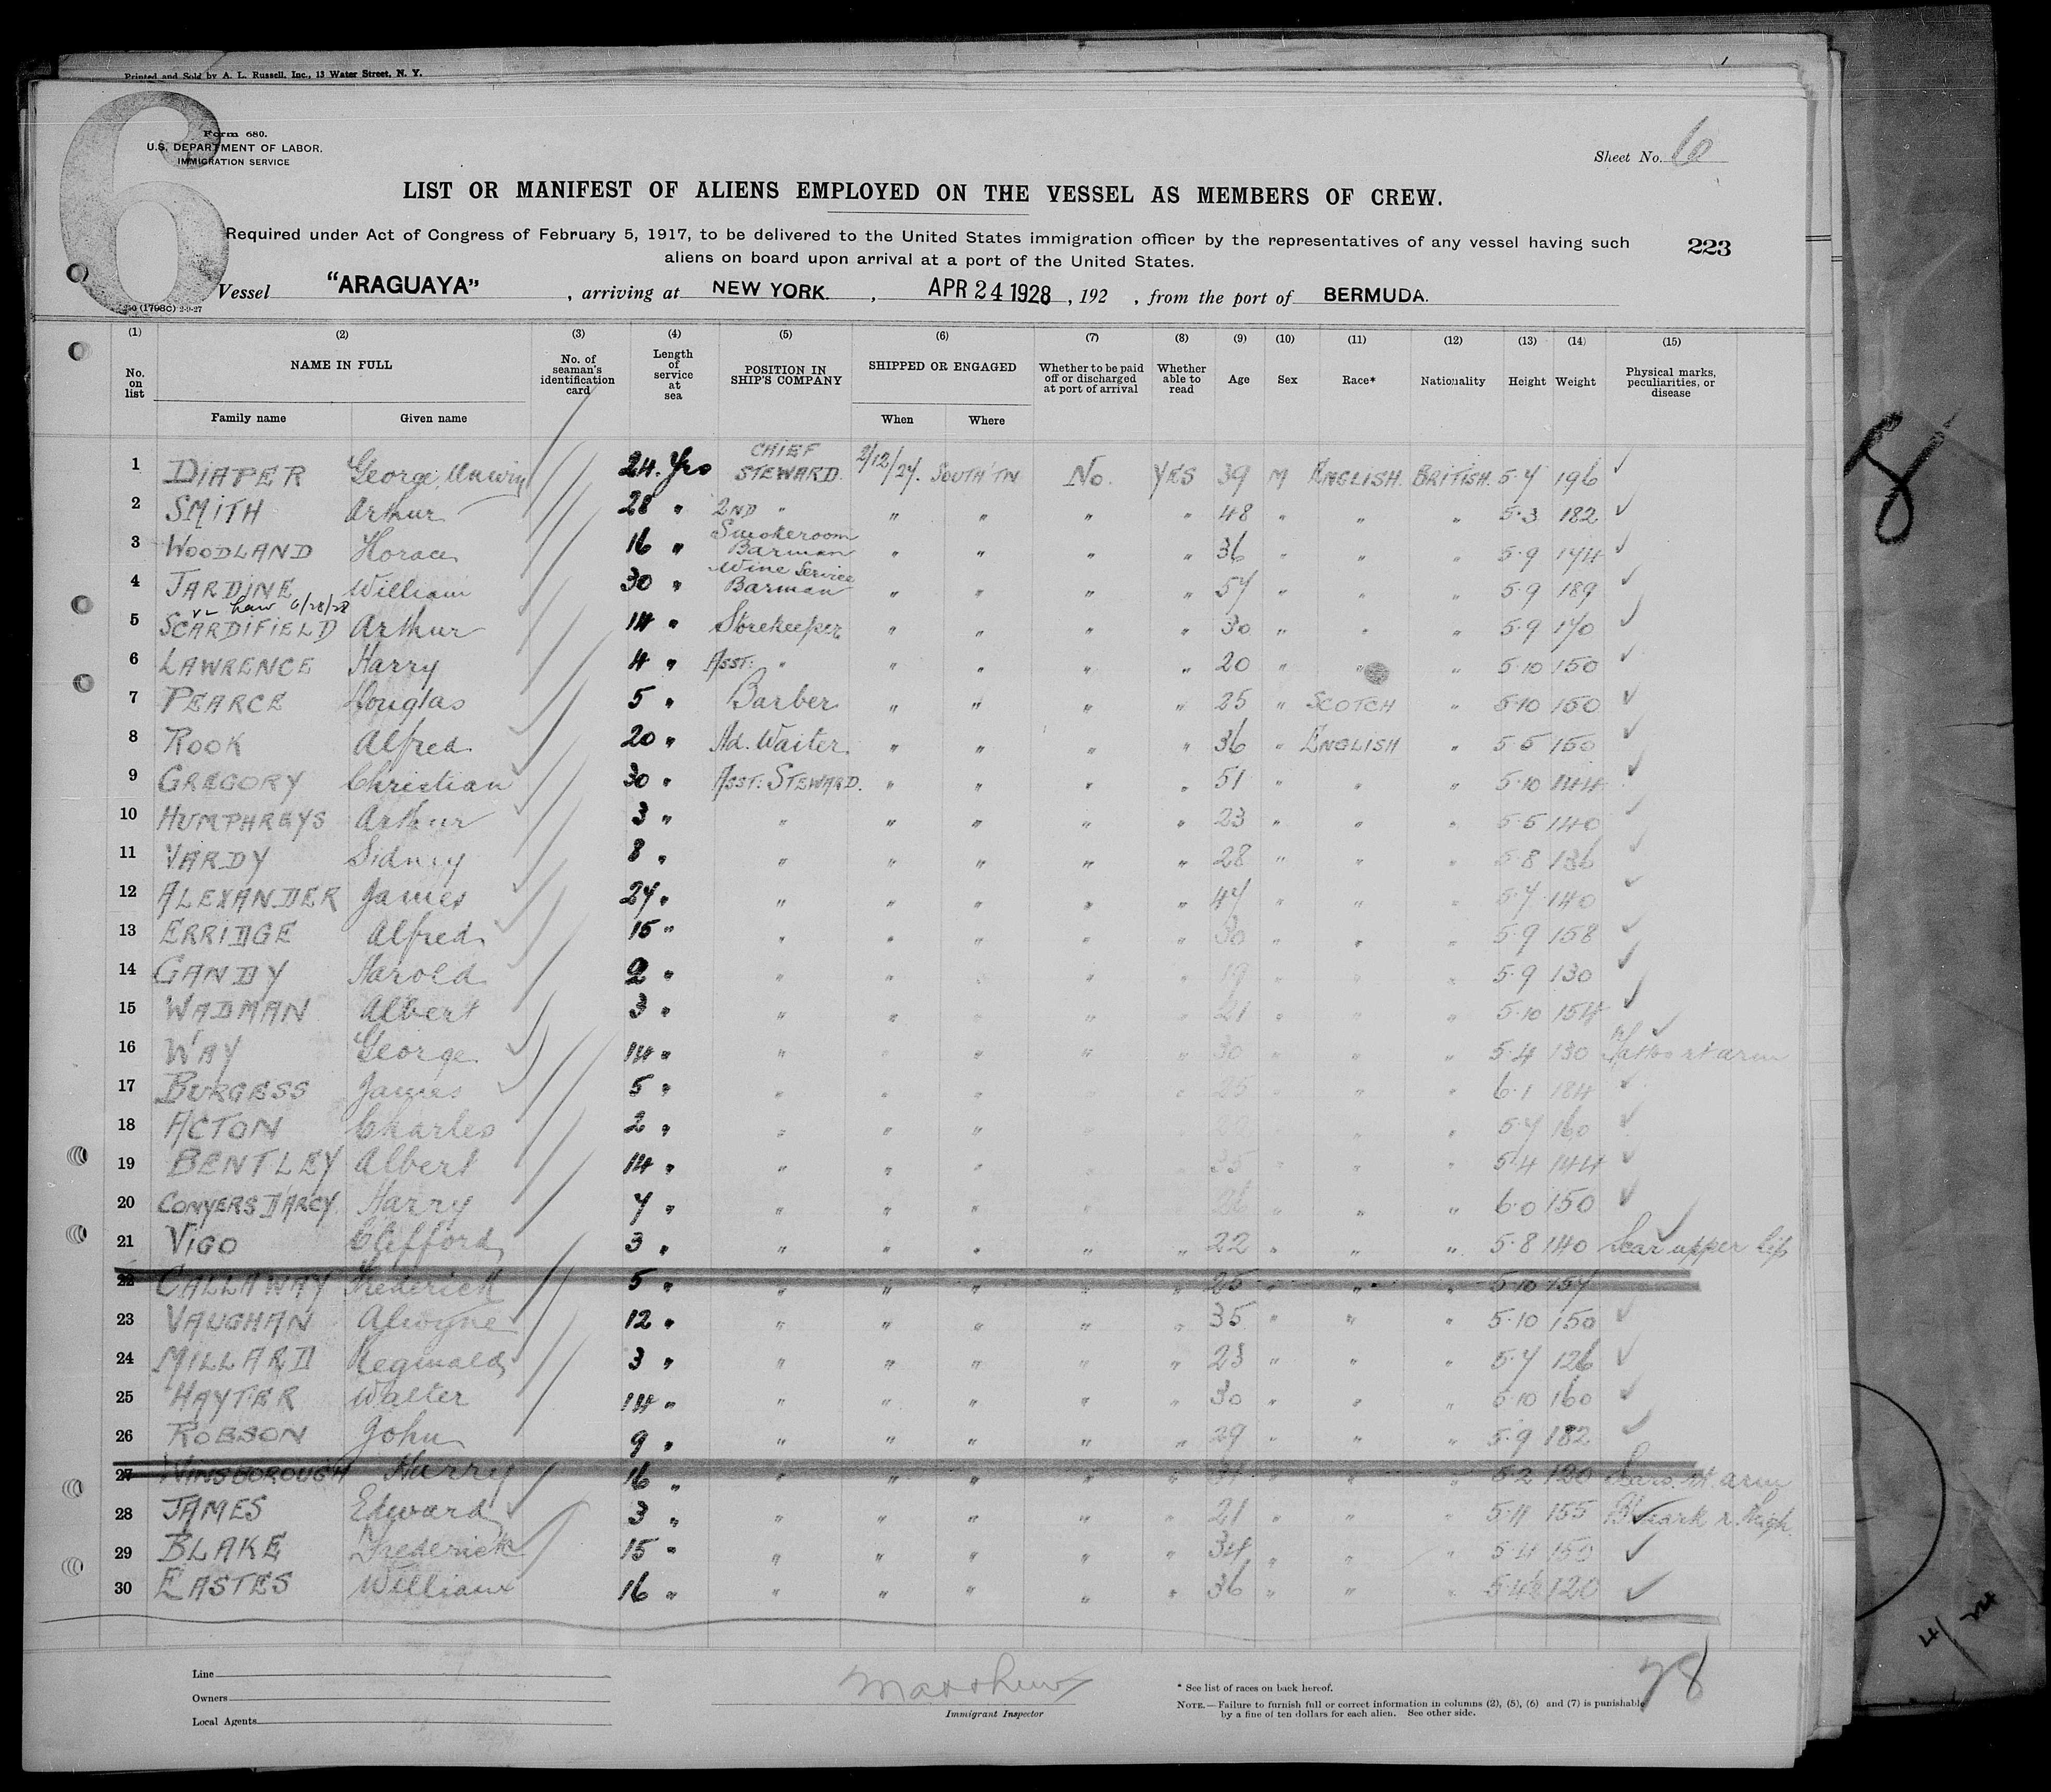 Printed and Sold by A. L. Russell, Inc., 13 Water Street, N. Y.
6
Form 680.
U.S. DEPARTMENT OF LABOR.
IMMIGRATION SERVICE
Sheet No. 6
LIST OR MANIFEST OF ALIENS EMPLOYED ON THE VESSEL AS MEMBERS OF CREW.
Required under Act of Congress of February 5, 1917, to be delivered to the United States immigration officer by the representatives of any vessel having such
aliens on board upon arrival at a port of the United States.
223
Vessel "ARAGUAYA", arriving at NEW YORK., APR 24 1928, 192 , from the port of BERMUDA.
(1798C) 2-9-27
(1) (2) (3) (4) (5) (6) (7) (8) (9) (10) (11) (12) (13) (14) (15)
No. on list NAME IN FULL Family name Given name No. of seaman's identification card Length of service at sea POSITION IN SHIP'S COMPANY SHIPPED OR ENGAGED When Where Whether to be paid off or discharged at port of arrival Whether able to read Age Sex Race* Nationality Height Weight Physical marks, peculiarities, or disease
1 DIAPER George Unwin 24. Yrs CHIEF STEWARD. 2/12/27. SOUTH'TN No. YES 39 M ENGLISH. BRITISH. 5·7 196 ✓
2 SMITH Arthur 28 " 2ND " " " " " 48 " " " 5·3 182 ✓
3 WOODLAND Horace 16 " Smokeroom Barman " " " " 36 " " " 5·9 144 ✓
4 JARDINE William 30 " Wine Service Barman " " " " 57 " " " 5·9 189 ✓
5 SCARDIFIELD Arthur 14 " Storekeeper " " " " 30 " " " 5·9 170 ✓
6 LAWRENCE Harry 4 " ASST: " " " " " 20 " " " 5·10 150 ✓
7 PEARCE Douglas 5 " Barber " " " " 25 " SCOTCH " 5·10 150 ✓
8 ROOK Alfred 20 " Hd. Waiter " " " " 36 " ENGLISH " 5·5 150 ✓
9 GREGORY Christian 30 " ASST: STEWARD. " " " " 51 " " " 5·10 144 ✓
10 HUMPHREYS Arthur 3 " " " " " " 23 " " " 5·5 140 ✓
11 VARDY Sidney 8 " " " " " " 28 " " " 5·8 136 ✓
12 ALEXANDER James 27 " " " " " " 47 " " " 5·7 140 ✓
13 ERRIDGE Alfred 15 " " " " " " 30 " " " 5·9 158 ✓
14 GANDY Harold 2 " " " " " " 19 " " " 5·9 130 ✓
15 WADMAN Albert 3 " " " " " " 21 " " " 5·10 154 ✓
16 WAY George 14 " " " " " " 30 " " " 5·4 130 Tattoo rt arm ✓
17 BURGESS James 5 " " " " " " 25 " " " 6·1 184 ✓
18 ACTON Charles 2 " " " " " " 22 " " " 5·7 160 ✓
19 BENTLEY Albert 14 " " " " " " 35 " " " 5·4 144 ✓
20 CONYERS D'ARCY. Harry 7 " " " " " " 26 " " " 6·0 150 ✓
21 VIGO Clifford 3 " " " " " " 22 " " " 5·8 140 Scar upper lip ✓
22 CALLAWAY Frederick 5 " " " " " " 25 " " " 5·10 157
23 VAUGHAN Alwyne 12 " " " " " " 35 " " " 5·10 150 ✓
24 MILLARD Reginald 3 " " " " " " 23 " " " 5·7 126 ✓
25 HAYTER Walter 14 " " " " " " 30 " " " 5·10 160 ✓
26 ROBSON John 9 " " " " " " 29 " " " 5·9 182 ✓
27 WINSBOROUGH Harry 16 " " " " " " 31 " " " 5·2 120 Scars. rt. arm
28 JAMES Edward 3 " " " " " " 21 " " " 5·11 155 B/mark r. thigh. ✓
29 BLAKE Frederick 15 " " " " " " 34 " " " 5·4 150 ✓
30 EASTES William 16 " " " " " " 36 " " " 120 ✓
Line
Owners
Local Agents
Matthews
Immigrant Inspector
* See list of races on back hereof.
NOTE.—Failure to furnish full or correct information in columns (2), (5), (6) and (7) is punishable
by a fine of ten dollars for each alien. See other side.
78
8
4/24